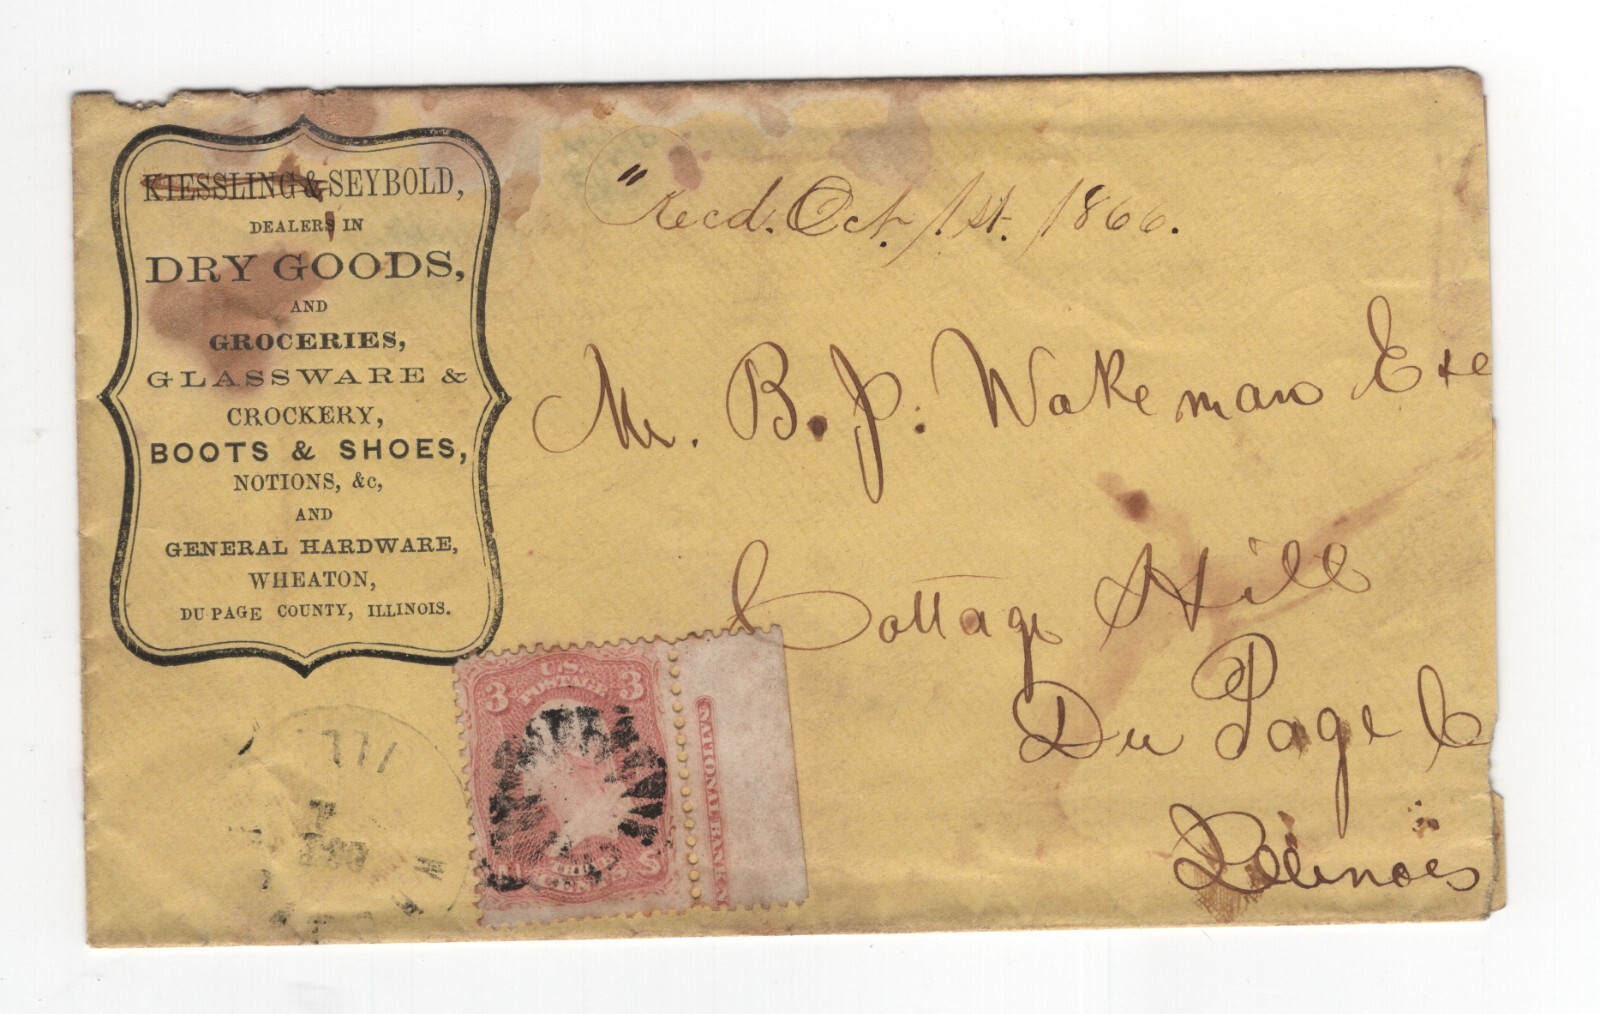 KIESSLING & SEYBOLD,
DEALERS IN
DRY GOODS,
AND
GROCERIES,
GLASSWARE &
CROCKERY,
BOOTS & SHOES,
NOTIONS, &c,
AND
GENERAL HARDWARE,
WHEATON,
DU PAGE COUNTY, ILLINOIS.
" Recd. Oct. 1st. 1866.
Mr. B. J. Wakeman Exe
Cottage Hill
Du Page C
Illinois
3 U.S. 3
POSTAGE
THREE
CENTS
NATIONAL BANK N
ILL